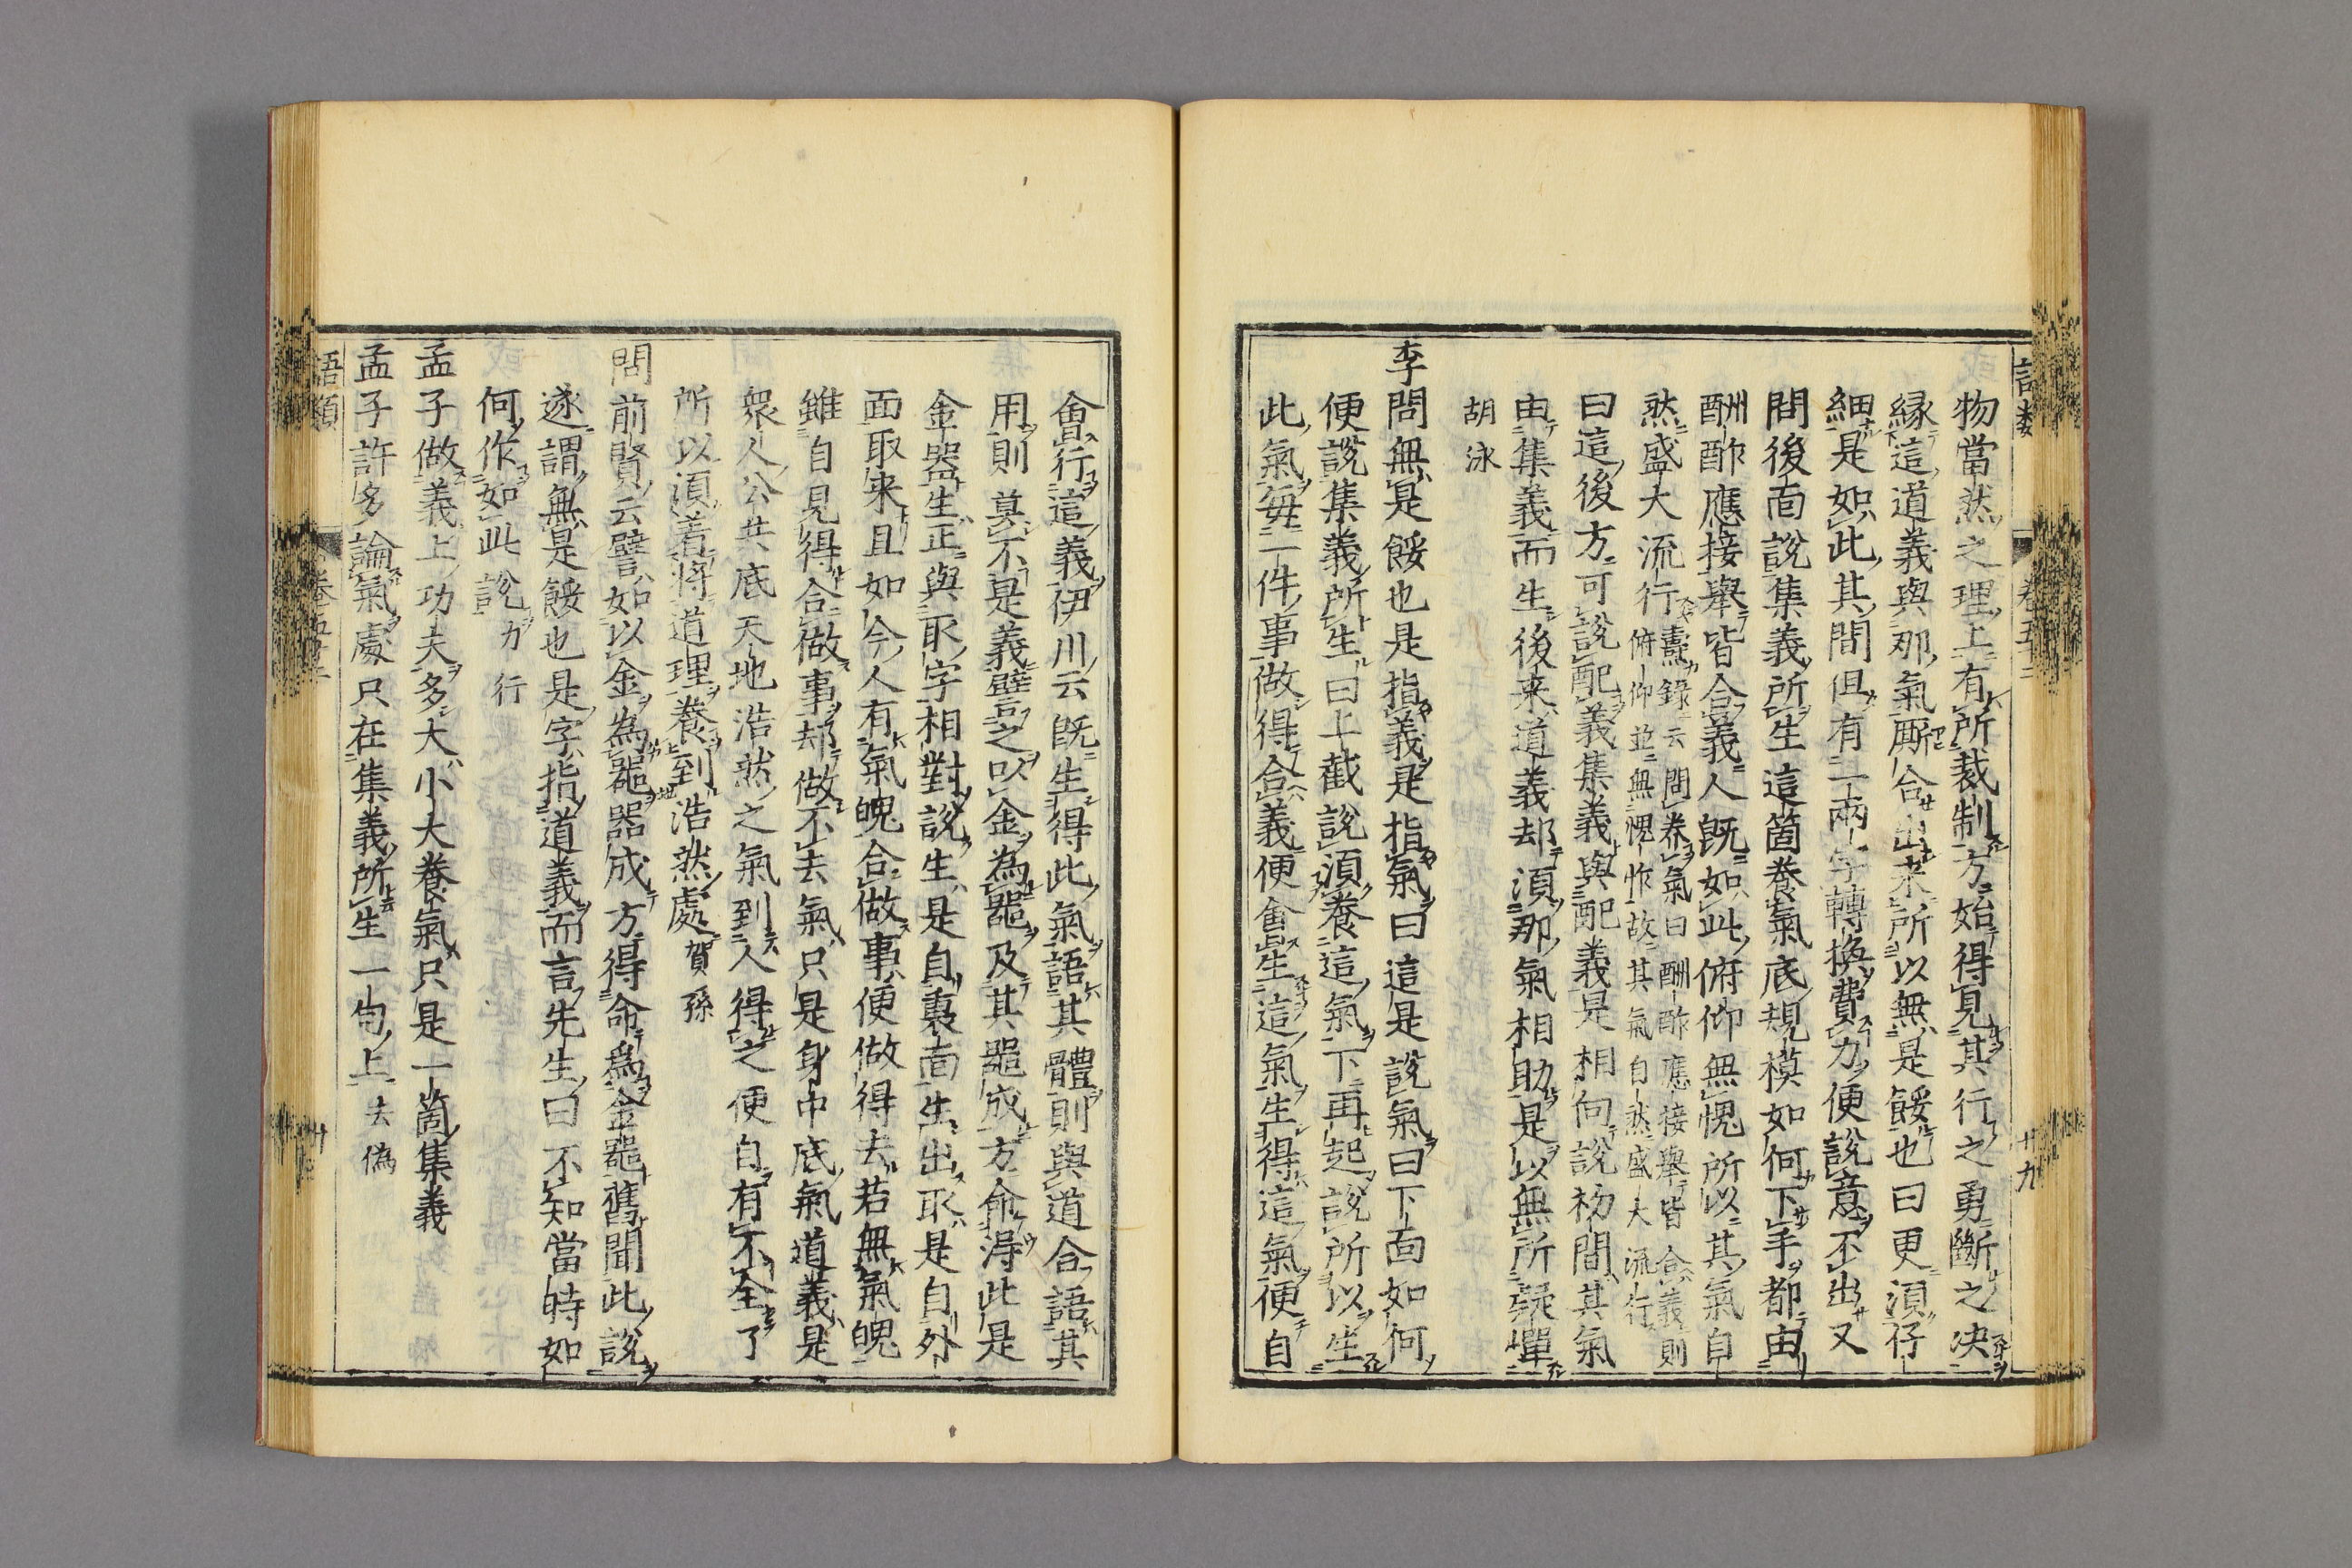 物當然之理上有所裁制方始得見其行之勇斷之决
縁這道義與那氣厮合出来所以無是餒也曰更湏仔
細是如此其間但有一兩字轉換費力便說意不出又
問後面說集義所生這箇養氣底規模如何下手都由
酬酢應接舉皆合義人旣如此俯仰無愧所以其氣自
然盛大流行
燾錄云問養氣曰酬酢應接舉皆合義則
俯仰並無愧怍故其氣自然盛大流行
曰這後方可說配義集義與配義是相向說初間其氣
由集義而生後来道義却湏那氣相助是以無所疑憚
胡泳
李問無是餒也是指義是指氣曰這是說氣曰下面如何
便說集義所生曰上截說湏養這氣下再起說所以生
此氣每一件事做得合義便會生這氣生得這氣便自
會行這義伊川云旣生得此氣語其體則與道合語其
用則莫不是義譬之以金為器及其器成方命得此是
金器生正與取字相對說生是自裏面生出取是自外
面取来且如今人有氣魄合做事便做得去若無氣魄
雖自見得合做事却做不去氣只是身中底氣道義是
衆人公共底天地浩然之氣到人得之便自有不全了
所以湏着將道理養到浩然處賀孫
問前賢云譬如以金為器器成方得命為金器舊聞此說
遂謂無是餒也是字指道義而言先生曰不知當時如
何作如此說力行
孟子做義上功夫多大小大養氣只是一箇集義
孟子許多論氣處只在集義所生一句上去偽
語類